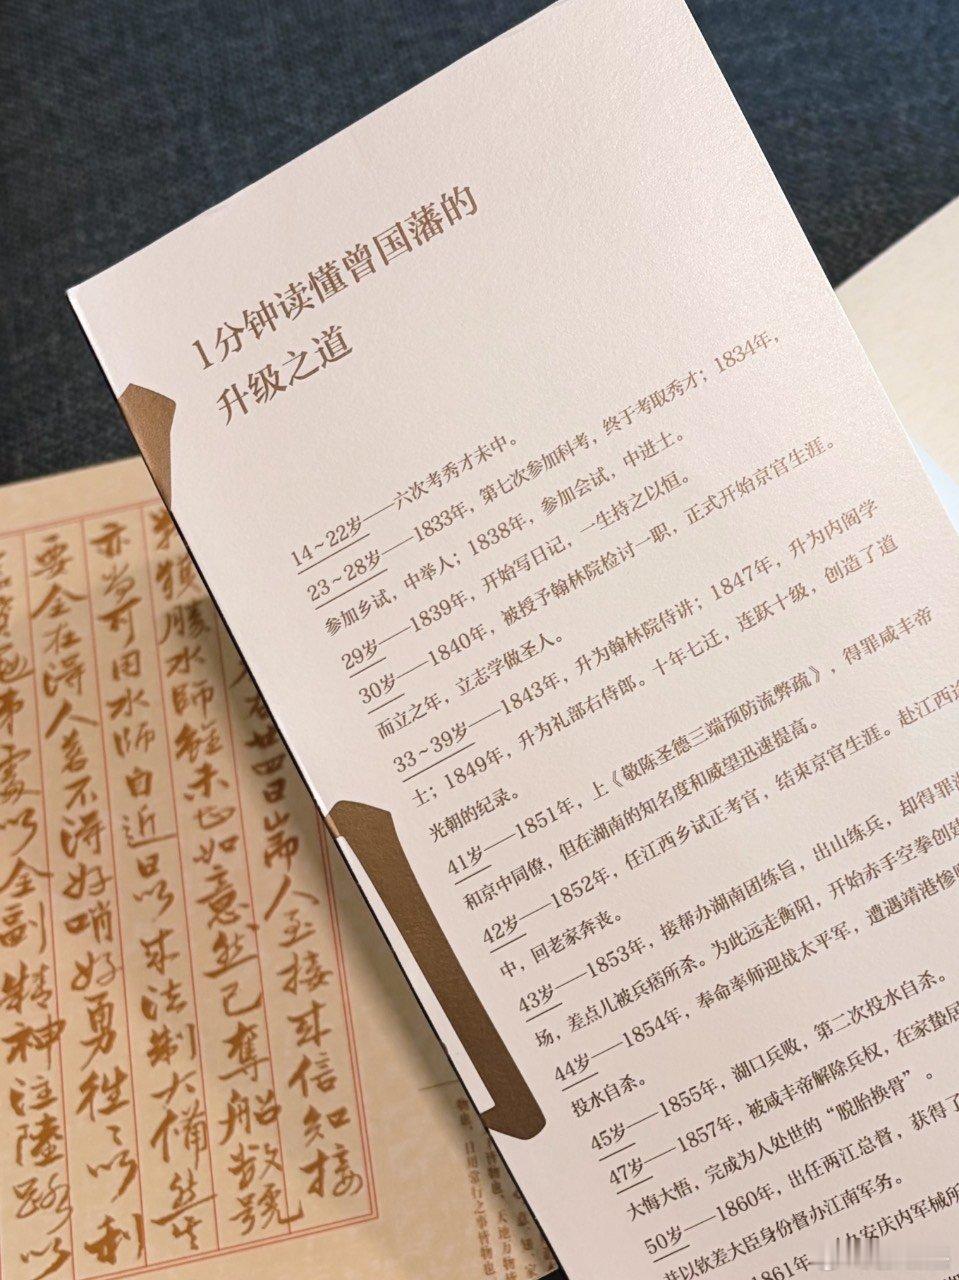 1分钟读懂曾国藩的
升级之道
14~22岁——六次考秀才未中。
23~28岁——1833年，第七次参加科考，终于考取秀才；1834年，
参加乡试，中举人；1838年，参加会试，中进士。
29岁——1839年，开始写日记，一生持之以恒。
30岁——1840年，被授予翰林院检讨一职，正式开始京官生涯。
而立之年，立志学做圣人。
33~39岁——1843年，升为翰林院侍讲；1847年，升为内阁学
士；1849年，升为礼部右侍郎。十年七迁，连跃十级，创造了道
光朝的纪录。
41岁——1851年，上《敬陈圣德三端预防流弊疏》，得罪咸丰帝
和京中同僚，但在湖南的知名度和威望迅速提高。
42岁——1852年，任江西乡试正考官，结束京官生涯。赴江西途
中，回老家奔丧。
43岁——1853年，接帮办湖南团练旨，出山练兵，却得罪湖
场，差点儿被兵痞所杀。为此远走衡阳，开始赤手空拳创建
44岁——1854年，奉命率师迎战太平军，遭遇靖港惨败
投水自杀。
45岁——1855年，湖口兵败，第二次投水自杀。
47岁——1857年，被咸丰帝解除兵权，在家蛰居
大悔大悟，完成为人处世的“脱胎换骨”。
50岁——1860年，出任两江总督，获得了
并以钦差大臣身份督办江南军务。
1861年——创办安庆内军械所
廿四日專人至接来信知接
勝水師雖未必如意然已奪船数號
亦尚可用水師自近日以来法制大備然其
要全在得人若不得好哨好勇往往以利
處以全副精神注陸路以